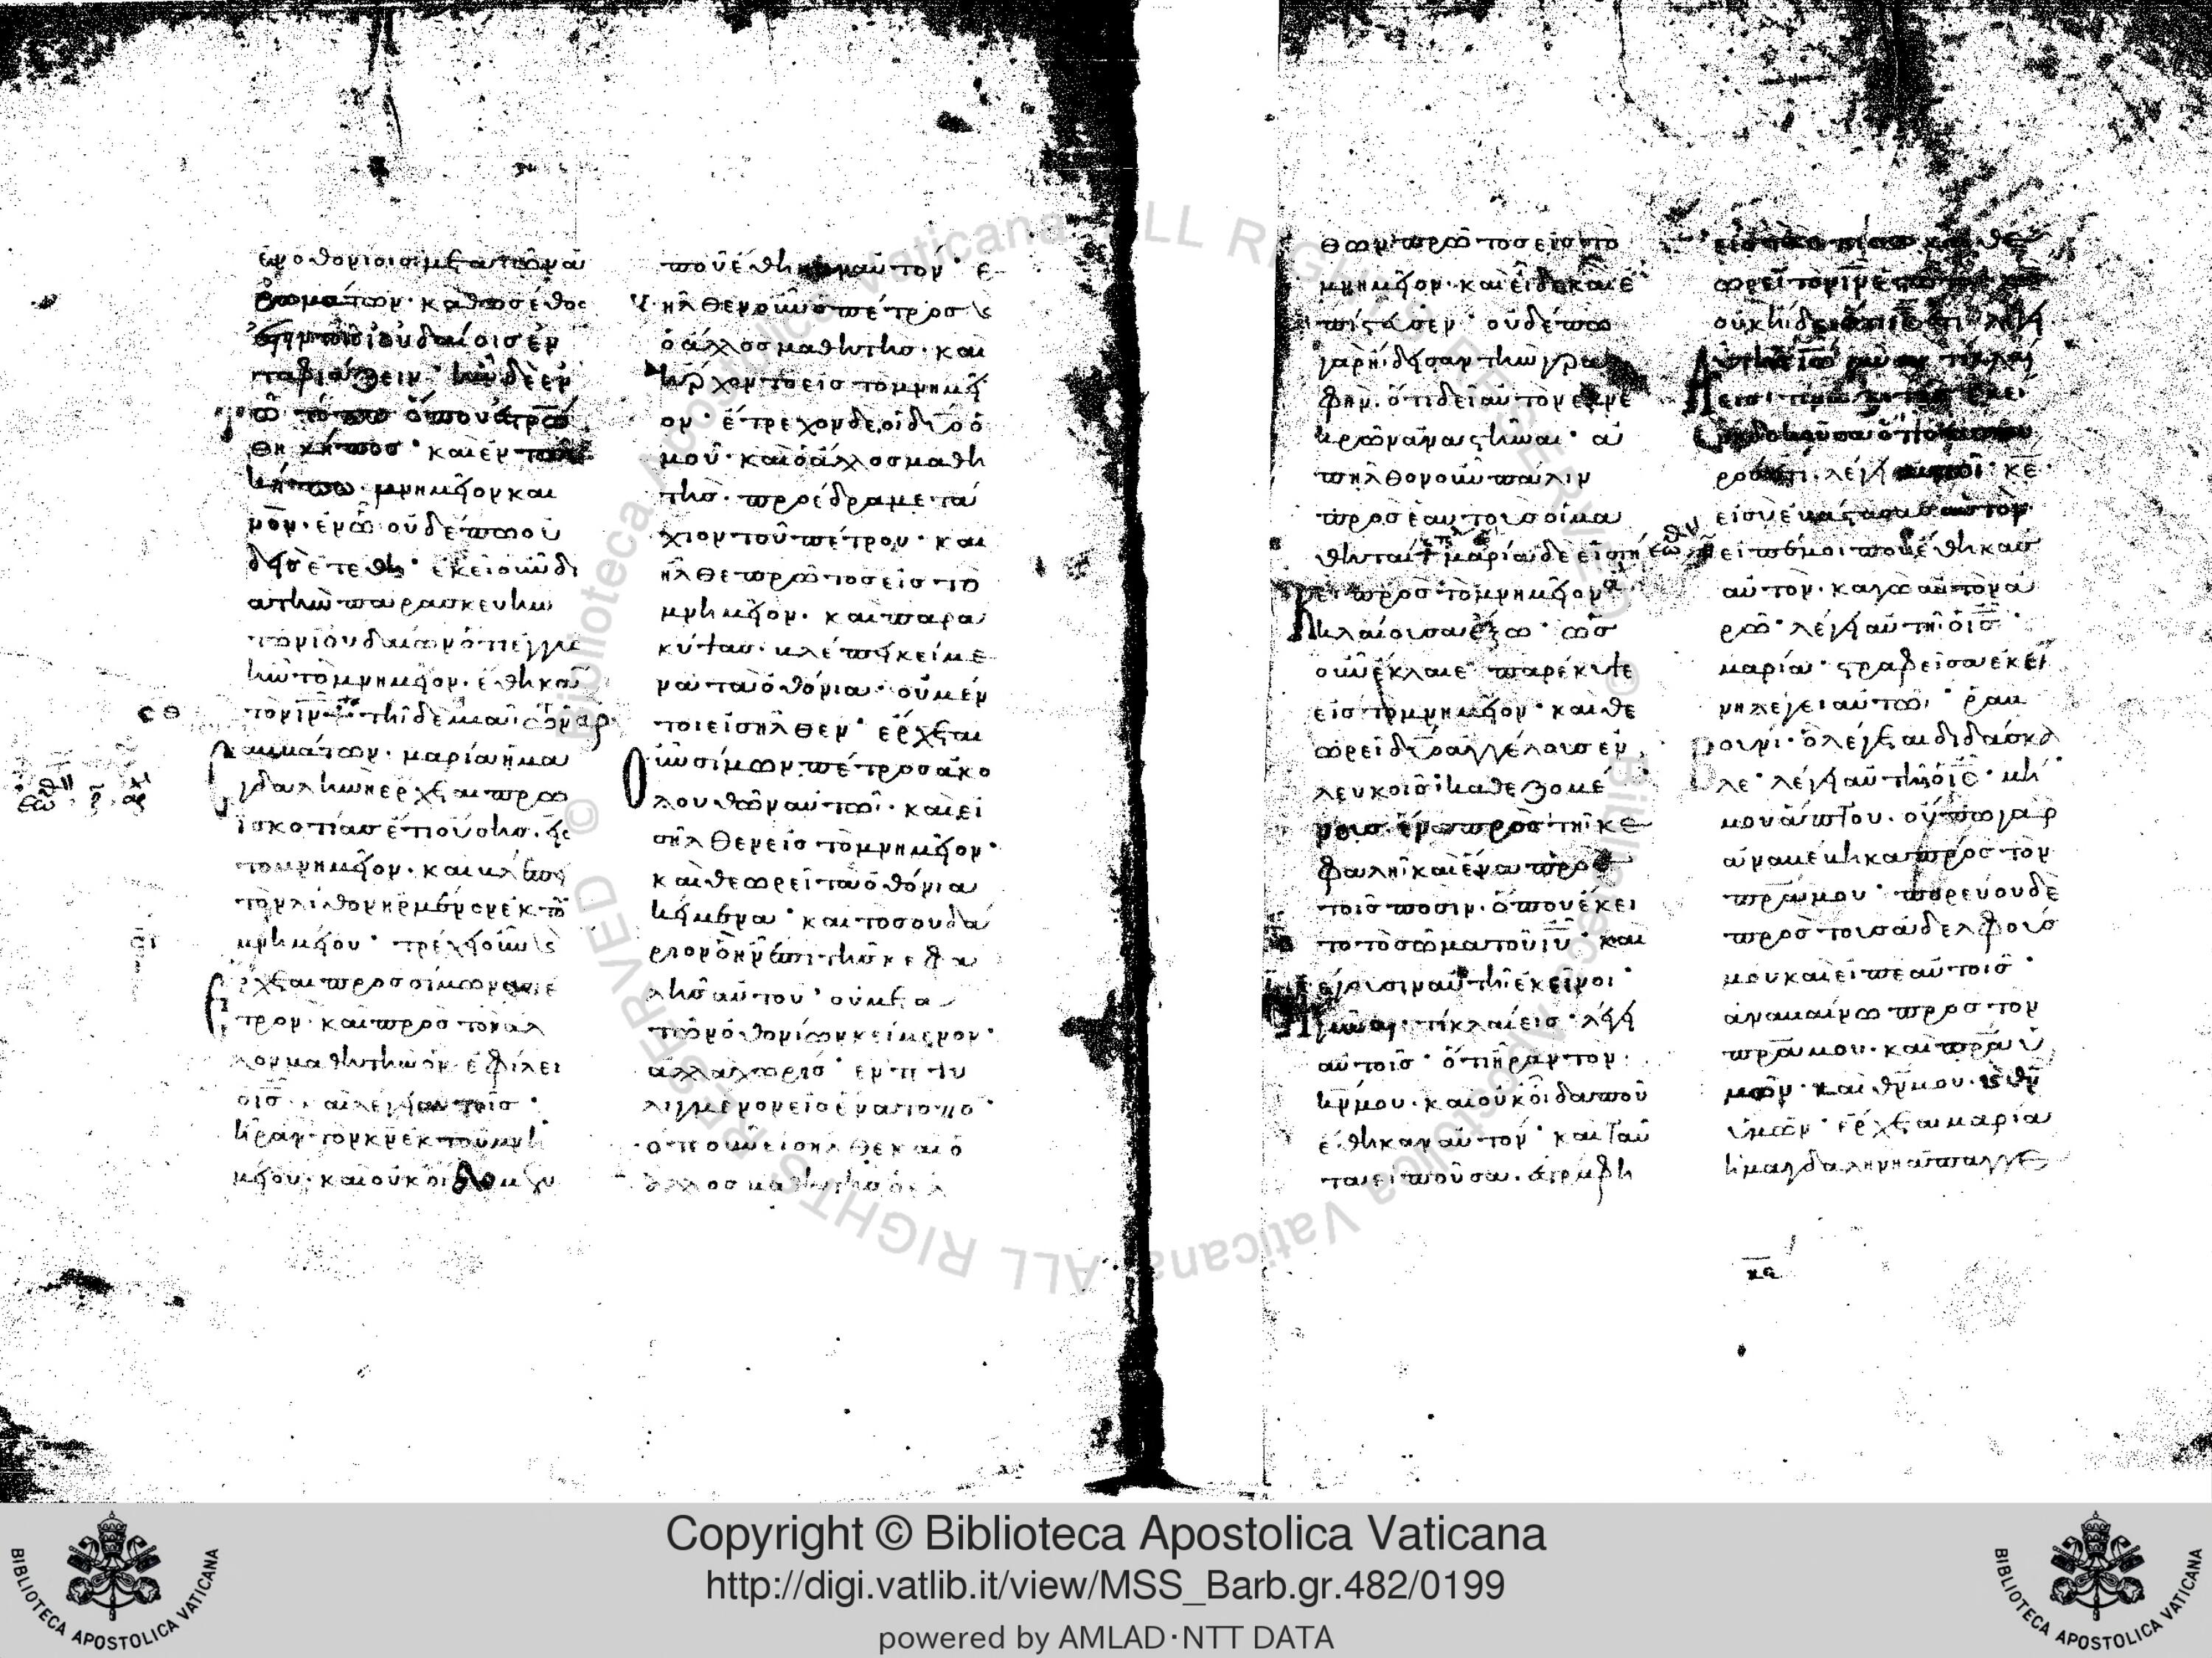 ἐν ὀθονίοις μετὰ τῶν ἀ
ρωμάτων· καθὼς ἔθος
ἐστὶ τοῖς ἰουδαίοις ἐν
ταφιάζειν· ἦν δὲ ἐν
τῶ τόπω ὅπου ἐστρώ
θη κῆπος· καὶ ἐν τῶ
κήπω μνημεῖον και
νὸν· ἐν ὧ οὐδέπω οὐ
δεὶς ἐτέθη· ἐκεῖ οὖν δι
α τὴν παρασκευὴν
τῶν ἰουδαίων ὅτι ἐγγὺς
ἦν τὸ μνημεῖον· ἔθηκαν
τὸν ιν τῆ δὲ μιᾶ τῶν σαβ
βάτων· μαρία ἡ μα
γδαληνὴ ἔρχεται πρωῒ
σκοτίας ἔτι οὔσης· εἰς
τὸ μνημεῖον· καὶ βλέπει
τὸν λίθον ἠρμένον ἐκ τοῦ
μνημείου· τρέχει οὖν καὶ
ἔρχεται πρὸς σίμωνα πέ
τρον· καὶ πρὸς τὸν ἄλ
λον μαθητὴν ὃν ἐφίλει
ὁ ις· καὶ λέγει αὐτοῖς·
ἦραν τὸν κν ἐκ τοῦ μνη
μείου· καὶ οὐκ οἴδαμεν
ποῦ ἔθηκαν αὐτόν· ἐ
ξῆλθεν οὖν ὁ πέτρος καὶ
ὁ ἄλλος μαθητὴς· καὶ
ἤρχοντο εἰς τὸ μνημεῖ
ον· ἔτρεχον δὲ οἱ δύο ὁ
μοῦ· καὶ ὁ ἄλλος μαθη
τὴς· προέδραμε τά
χιον τοῦ πέτρου· καὶ
ἦλθε πρῶτος εἰς τὸ
μνημεῖον· καὶ παρα
κύψας· βλέπει κείμε
να τὰ ὀθόνια· οὐ μέν
τοι εἰσῆλθεν· ἔρχεται
οὖν σίμων πέτρος ἀκο
λουθῶν αὐτῶ· καὶ εἰ
σῆλθεν εἰς τὸ μνημεῖον·
καὶ θεωρεῖ τὰ ὀθόνια
κείμενα· καὶ τὸ σουδά
ριον ὃ ἦν ἐπὶ τῆς κεφα
λῆς αὐτοῦ· οὐ μετὰ
τῶν ὀθονίων κείμενον·
ἀλλὰ χωρὶς ἐντετυ
λιγμένον εἰς ἕνα τόπον·
τότε οὖν εἰσῆλθε καὶ ὁ
ἄλλος μαθητὴς ὁ ἐλ
θὼν πρῶτος εἰς τὸ
μνημεῖον· καὶ εἶδε καὶ ἐ
πίστευσεν· οὐδέπω
γὰρ ἤδεσαν τὴν γρα
φὴν· ὅτι δεῖ αὐτὸν ἐκ νε
κρῶν ἀναστῆναι· ἀ
πῆλθον οὖν πάλιν
πρὸς ἑαυτοὺς οἱ μα
θηταί· μαρία δὲ εἱστή
κει πρὸς τὸ μνημεῖον
κλαίουσα ἔξω· ὡς
οὖν ἔκλαιε· παρέκυψε
εἰς τὸ μνημεῖον· καὶ θε
ωρεῖ δύο ἀγγέλους ἐν
λευκοῖς καθεζομέ
νους· ἕνα πρὸς τῆ κε
φαλῆ καὶ ἕνα πρὸς
τοῖς ποσὶν· ὅπου ἔκει
το τὸ σῶμα τοῦ ιυ· καὶ
λέγουσιν αὐτῆ ἐκεῖνοι·
γύναι· τί κλαίεις· λέγει
αὐτοῖς· ὅτι ἦραν τὸν
κν μου· καὶ οὐκ οἶδα ποῦ
ἔθηκαν αὐτόν· καὶ ταῦ
τα εἰποῦσα· ἐστράφη
εἰς τὰ ὀπίσω καὶ θε
ωρεῖ τὸν ιν ἑστῶτα καὶ
οὐκ ἤδει ὅτι ις ἐστι· λέγει
αὐτῆ ὁ ις γύναι τί κλαί
εις· τίνα ζητεῖς· ἐκεί
νη δοκοῦσα ὅτι ὁ κηπου
ρός ἐστι· λέγει αὐτῶ· κε
εἰ σὺ ἐβάστασας αὐτὸν·
εἰπέ μοι ποῦ ἔθηκας
αὐτὸν· καγὼ αὐτὸν ἀ
ρῶ· λέγει αὐτῆ ὁ ις·
μαρία· στραφεῖσα ἐκεί
νη λέγει αὐτῶ· ῥαβ
βουνί· ὃ λέγεται διδάσκα
λε· λέγει αὐτῆ ὁ ις· μή
μου ἅπτου· οὔπω γὰρ
ἀναβέβηκα πρὸς τὸν
πρα μου· πορεύου δὲ
πρὸς τοὺς ἀδελφούς
μου καὶ εἰπὲ αὐτοῖς·
ἀναβαίνω πρὸς τὸν
πρα μου· καὶ πρα ὑ
μῶν· καὶ θν μου· καὶ θν
ὑμῶν· ἔρχεται μαρία
ἡ μαγδαληνὴ ἀπαγγέλ
κε
Copyright © Biblioteca Apostolica Vaticana
http://digi.vatlib.it/view/MSS_Barb.gr.482/0199
powered by AMLAD·NTT DATA
BIBLIOTECA APOSTOLICA VATICANA
BIBLIOTECA APOSTOLICA VATICANA